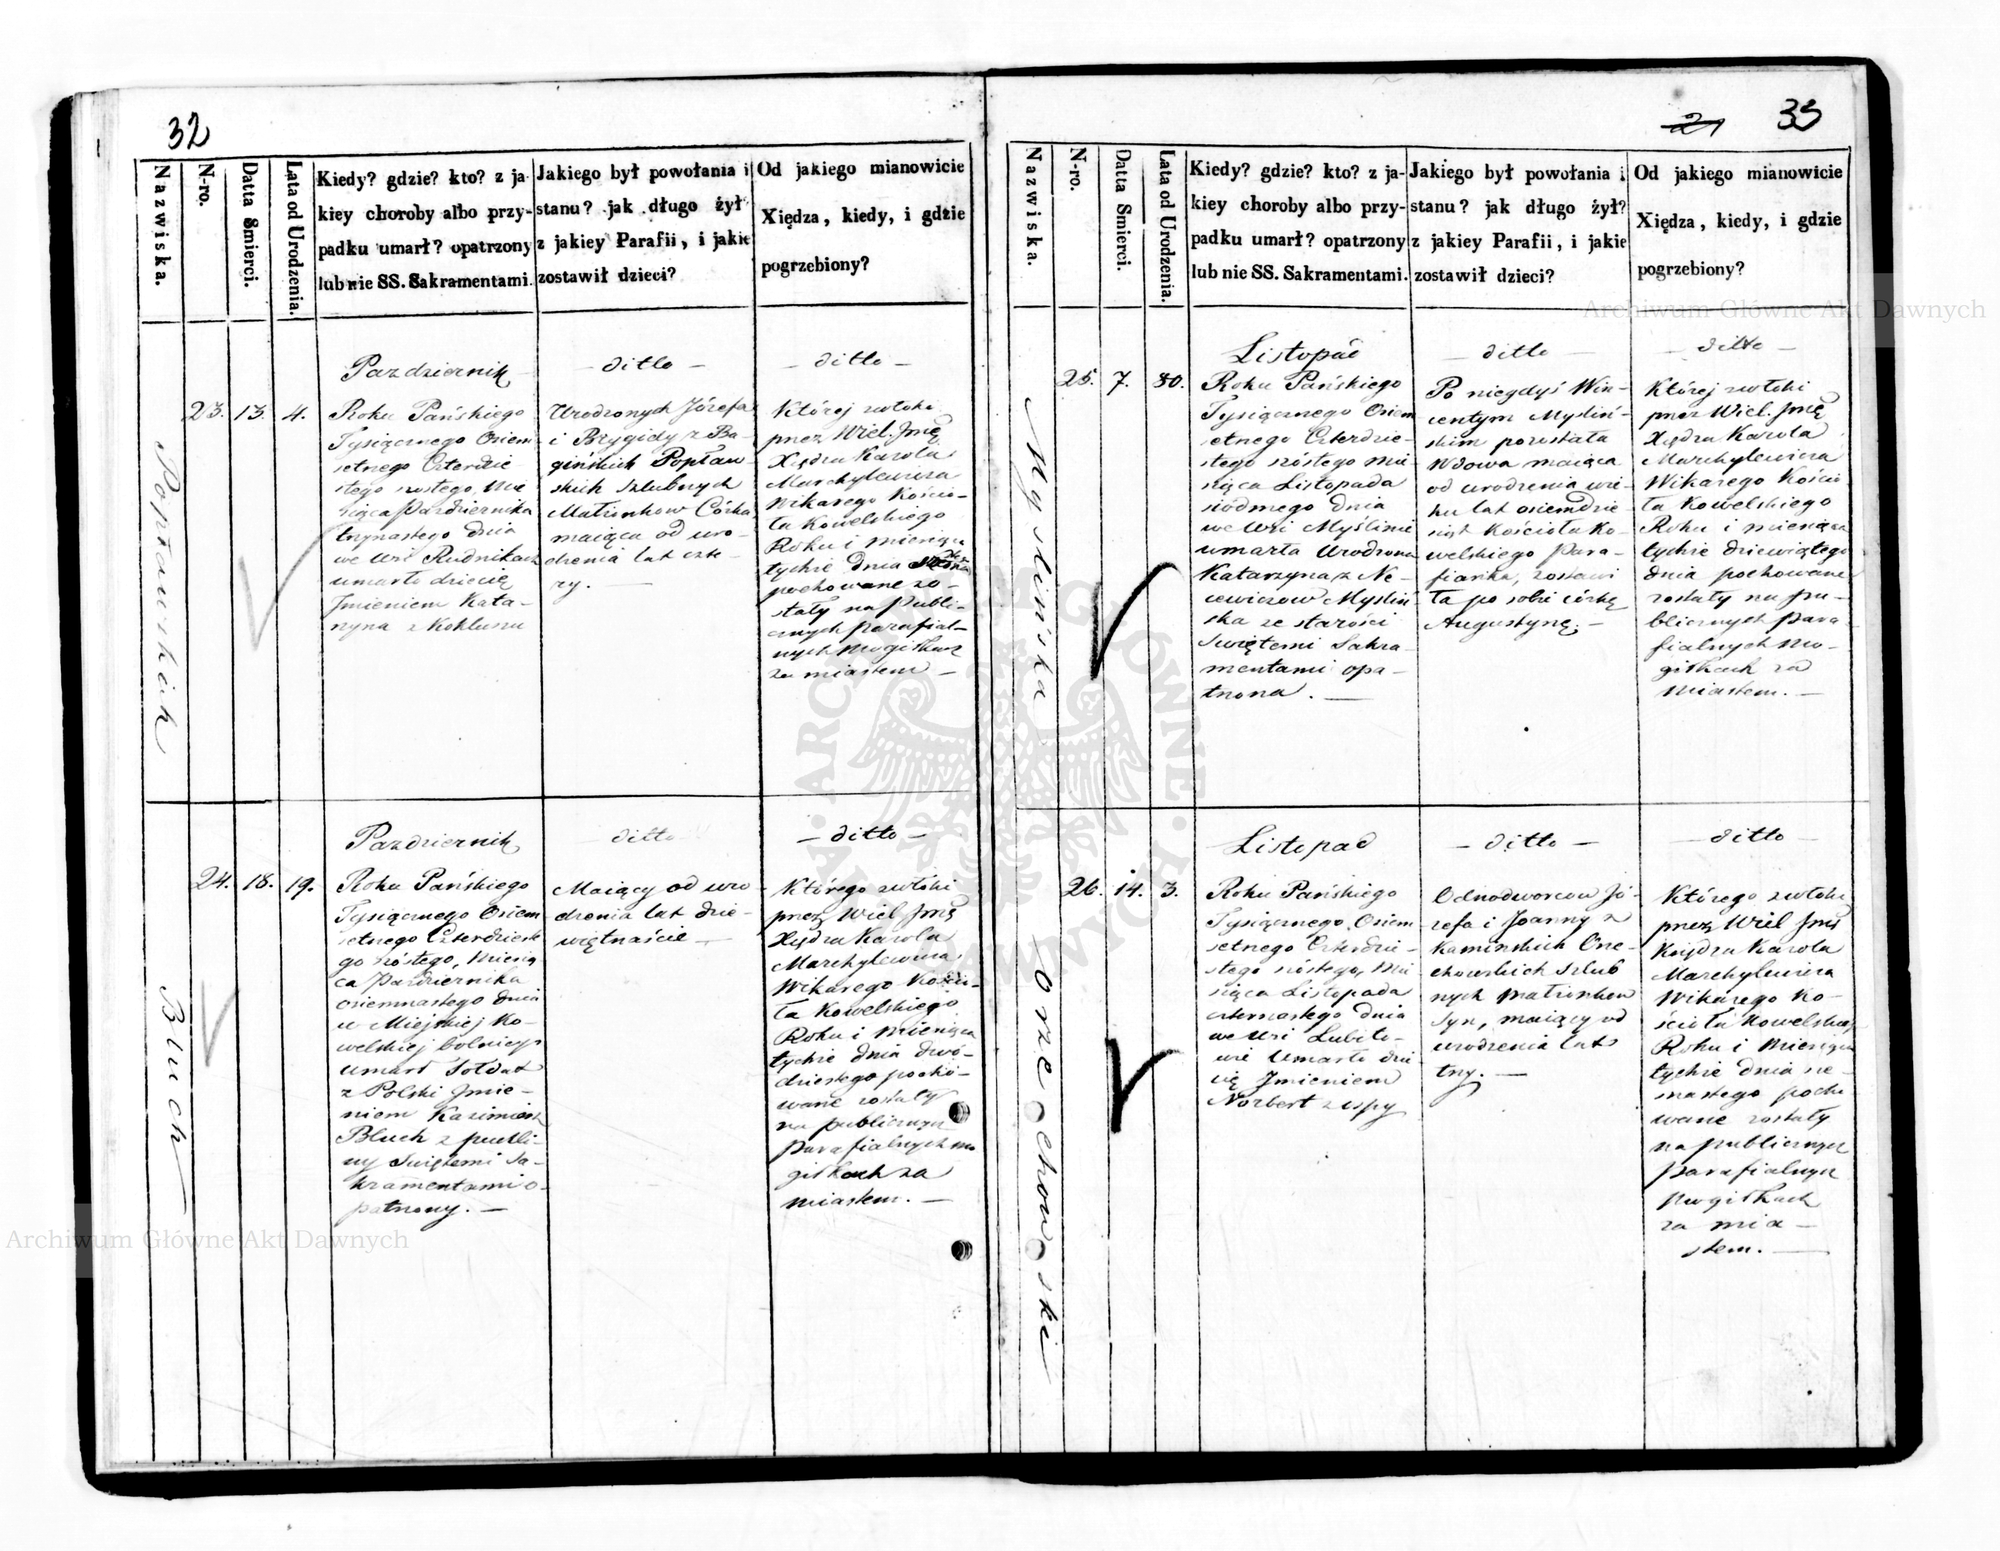 32
Nazwiska.
N-ro.
Datta Smierci.
Lata od Urodzenia.
Kiedy? gdzie? kto? z ja-
kiey choroby albo przy-
padku umarł? opatrzony
lub nie SS. Sakramentami.
Jakiego był powołania i
stanu? jak długo żył
z jakiey Parafii, i jakie
zostawił dzieci?
Od jakiego mianowicie
Xiędza, kiedy, i gdzie
pogrzebiony?
Popławskich
23.
13.
4.
Pazdziernik
Roku Pańskiego
Tysiącznego Osiem
setnego Czterdzie-
stego szostego, Mie
siąca Pazdziernika
trzynastego dnia
we wsi Rudnikach
umarło dziecię
Imieniem Kata-
rzyna z Kokluszu
- ditto -
Urodzonych Józefa
i Brygidy z Ba-
gińskich Popław
skich Szlubnych
Małżonkow Córka
maiąca od uro-
dzenia lat czte-
ry. -
- ditto -
Której zwłoki
przez Wiel. Jmę
Xiędza Karola
Marchylewicza
Wikarego Kościo-
ła Kowelskiego
Roku i miesiąca
tychże dnia
pochowane zo-
stały na publi-
cznych parafial-
nych mogiłkach
za miastem -
Bluch
24.
18.
19.
Pazdziernik
Roku Pańskiego
Tysiącznego Osiem
setnego Czterdzieste
go szóstego, Miesią
ca Pazdziernika
osiemnastego dnia
w Miejskiej Ko-
welskiej bolnicy
umarł Sołdat
z Polski Imie-
niem Kazimierz
Bluch z puchli-
ny Swiętemi Sa-
kramentami o-
patrzony. -
ditto
Maiący od uro
dzenia lat dzie-
więtnaście -
- ditto -
Którego zwłoki
przez Wiel Jmę
Xiędza Karola
Marchylewicza
Wikarego Kościo-
ła Kowelskiego
Roku i Miesiąca
tychże dnia dwó-
dziestego pocho-
wane zostały
na publicznych
parafialnych mo
giłkach za
miastem. -
21 33
Nazwiska.
N-ro.
Datta Smierci.
Lata od Urodzenia.
Kiedy? gdzie? kto? z ja-
kiey choroby albo przy-
padku umarł? opatrzony
lub nie SS. Sakramentami.
Jakiego był powołania i
stanu? jak długo żył?
z jakiey Parafii, i jakie
zostawił dzieci?
Od jakiego mianowicie
Xiędza, kiedy, i gdzie
pogrzebiony?
Myslińska
25.
7.
80.
Listopad
Roku Pańskiego
Tysiącznego Osiem
setnego Czterdzie-
stego szóstego Mie
siąca Listopada
siódmego dnia
we wsi Myślinie
umarła Urodzona
Katarzyna z Ne-
cewiczow Myslin
ska ze starości
Swiętemi Sakra-
mentami opa-
trzona. -
- ditto -
Po niegdyś Win-
centym Myslin-
skim pozostała
Wdowa maiąca
od urodzenia wie-
ku lat osiemdzie
siąt Kościoła Ko-
welskiego para-
fianka, zostawi
ła po sobie córkę
Augustynę. -
- ditto -
Której zwłoki
przez Wiel. Jmę
Xiędza Karola
Marchylewicza
Wikarego Kościo
ła Kowelskiego
Roku i miesiąca
tychże dziewiątego
dnia pochowane
zostały na pu-
blicznych para
fialnych mo-
giłkach za
miastem. -
Orzechowski
26.
14.
3.
Listopad
Roku Pańskiego
Tysiącznego Osiem
setnego Czterdzie-
stego szóstego, Mie
siąca Listopada
czternastego dnia
we wsi Lubito-
wie umarło dzie
cię Imieniem
Norbert z ospy
- ditto -
Odnodworcow Jó-
zefa i Joanny z
Kaminskich Orze-
chowskich Szlub
nych Małżonkow
Syn, maiący od
urodzenia lat
trzy. -
- ditto -
Którego zwłoki
przez Wiel Jmę
Księdza Karola
Marchylewicza
Wikarego Ko-
ścioła Kowelskiego
Roku i Miesiąca
tychże dnia sze-
snastego pocho
wane zostały
na publicznych
parafialnych
mogiłkach
za mia-
stem. -
Archiwum Główne Akt Dawnych
Archiwum Główne Akt Dawnych
ARCHIWUM GŁÓWNE AKT DAWNYCH